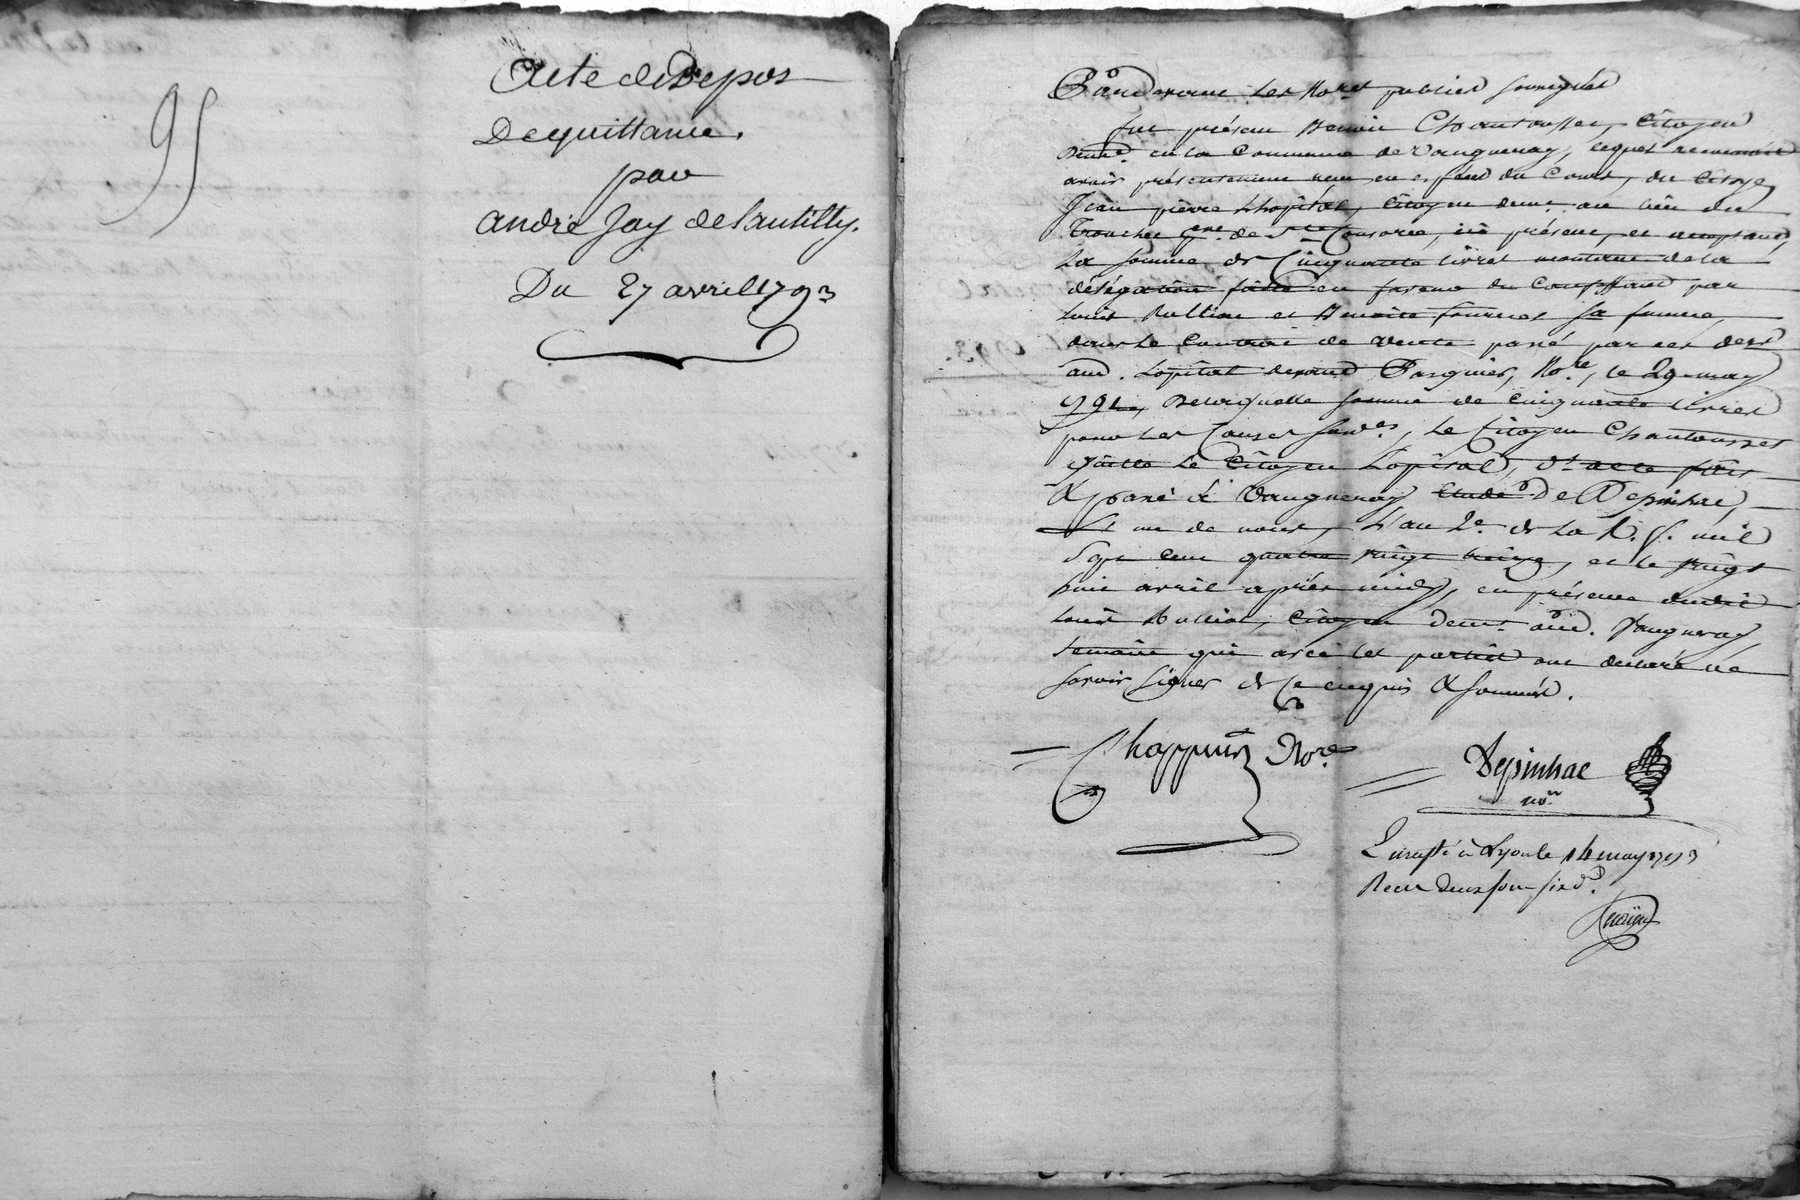 95
Acte de Depos
De quittance.
par
andré Jay de Lantilly.
Du 27 avril 1793
Pardevant les No.res publics soussignés
fut présent Benoit Chantousset, Citoyen
dem.t en la Commune de Vaugneray, lequel reconnoit
avoir présentement reçu en espèces du Cours, du Citoyen
Jean pierre Lhopital, Citoyen dem.t au lieu du
p.sse de S.te Consorce, icy présent, et acceptant,
La somme de Cinquante livres montant de la
délégation faitte en faveur du Comparant par
Louis Bullion et Benoite fournel sa femme,
dans le Contrat de vente passé par ces der.s
aud. Lopital devant Pasquier, No.re, le 29 may
De laquelle somme de Cinquante livres
pour les Causes susd.es, le Citoyen Chantousset
quitte Le Citoyen Lopital, d'acte fait
& passé à Vaugneray Etude de Depinhac,
L'un de nous, L'an 2.e de la R. f. mil
Sept Cent quatre vingt treize, et le vingt
huit avril après midy, en présence dudit
Louis Bullion, Citoyen dem.t aud. Vaugneray
temoin qui avec les parties ont déclaré ne
savoir Signer de Ce enquis & sommés.
Chappuis No.re
Depinhac
no.re
Enregté à Lyon le 14 may 1793
Reçu Deux sous six d.